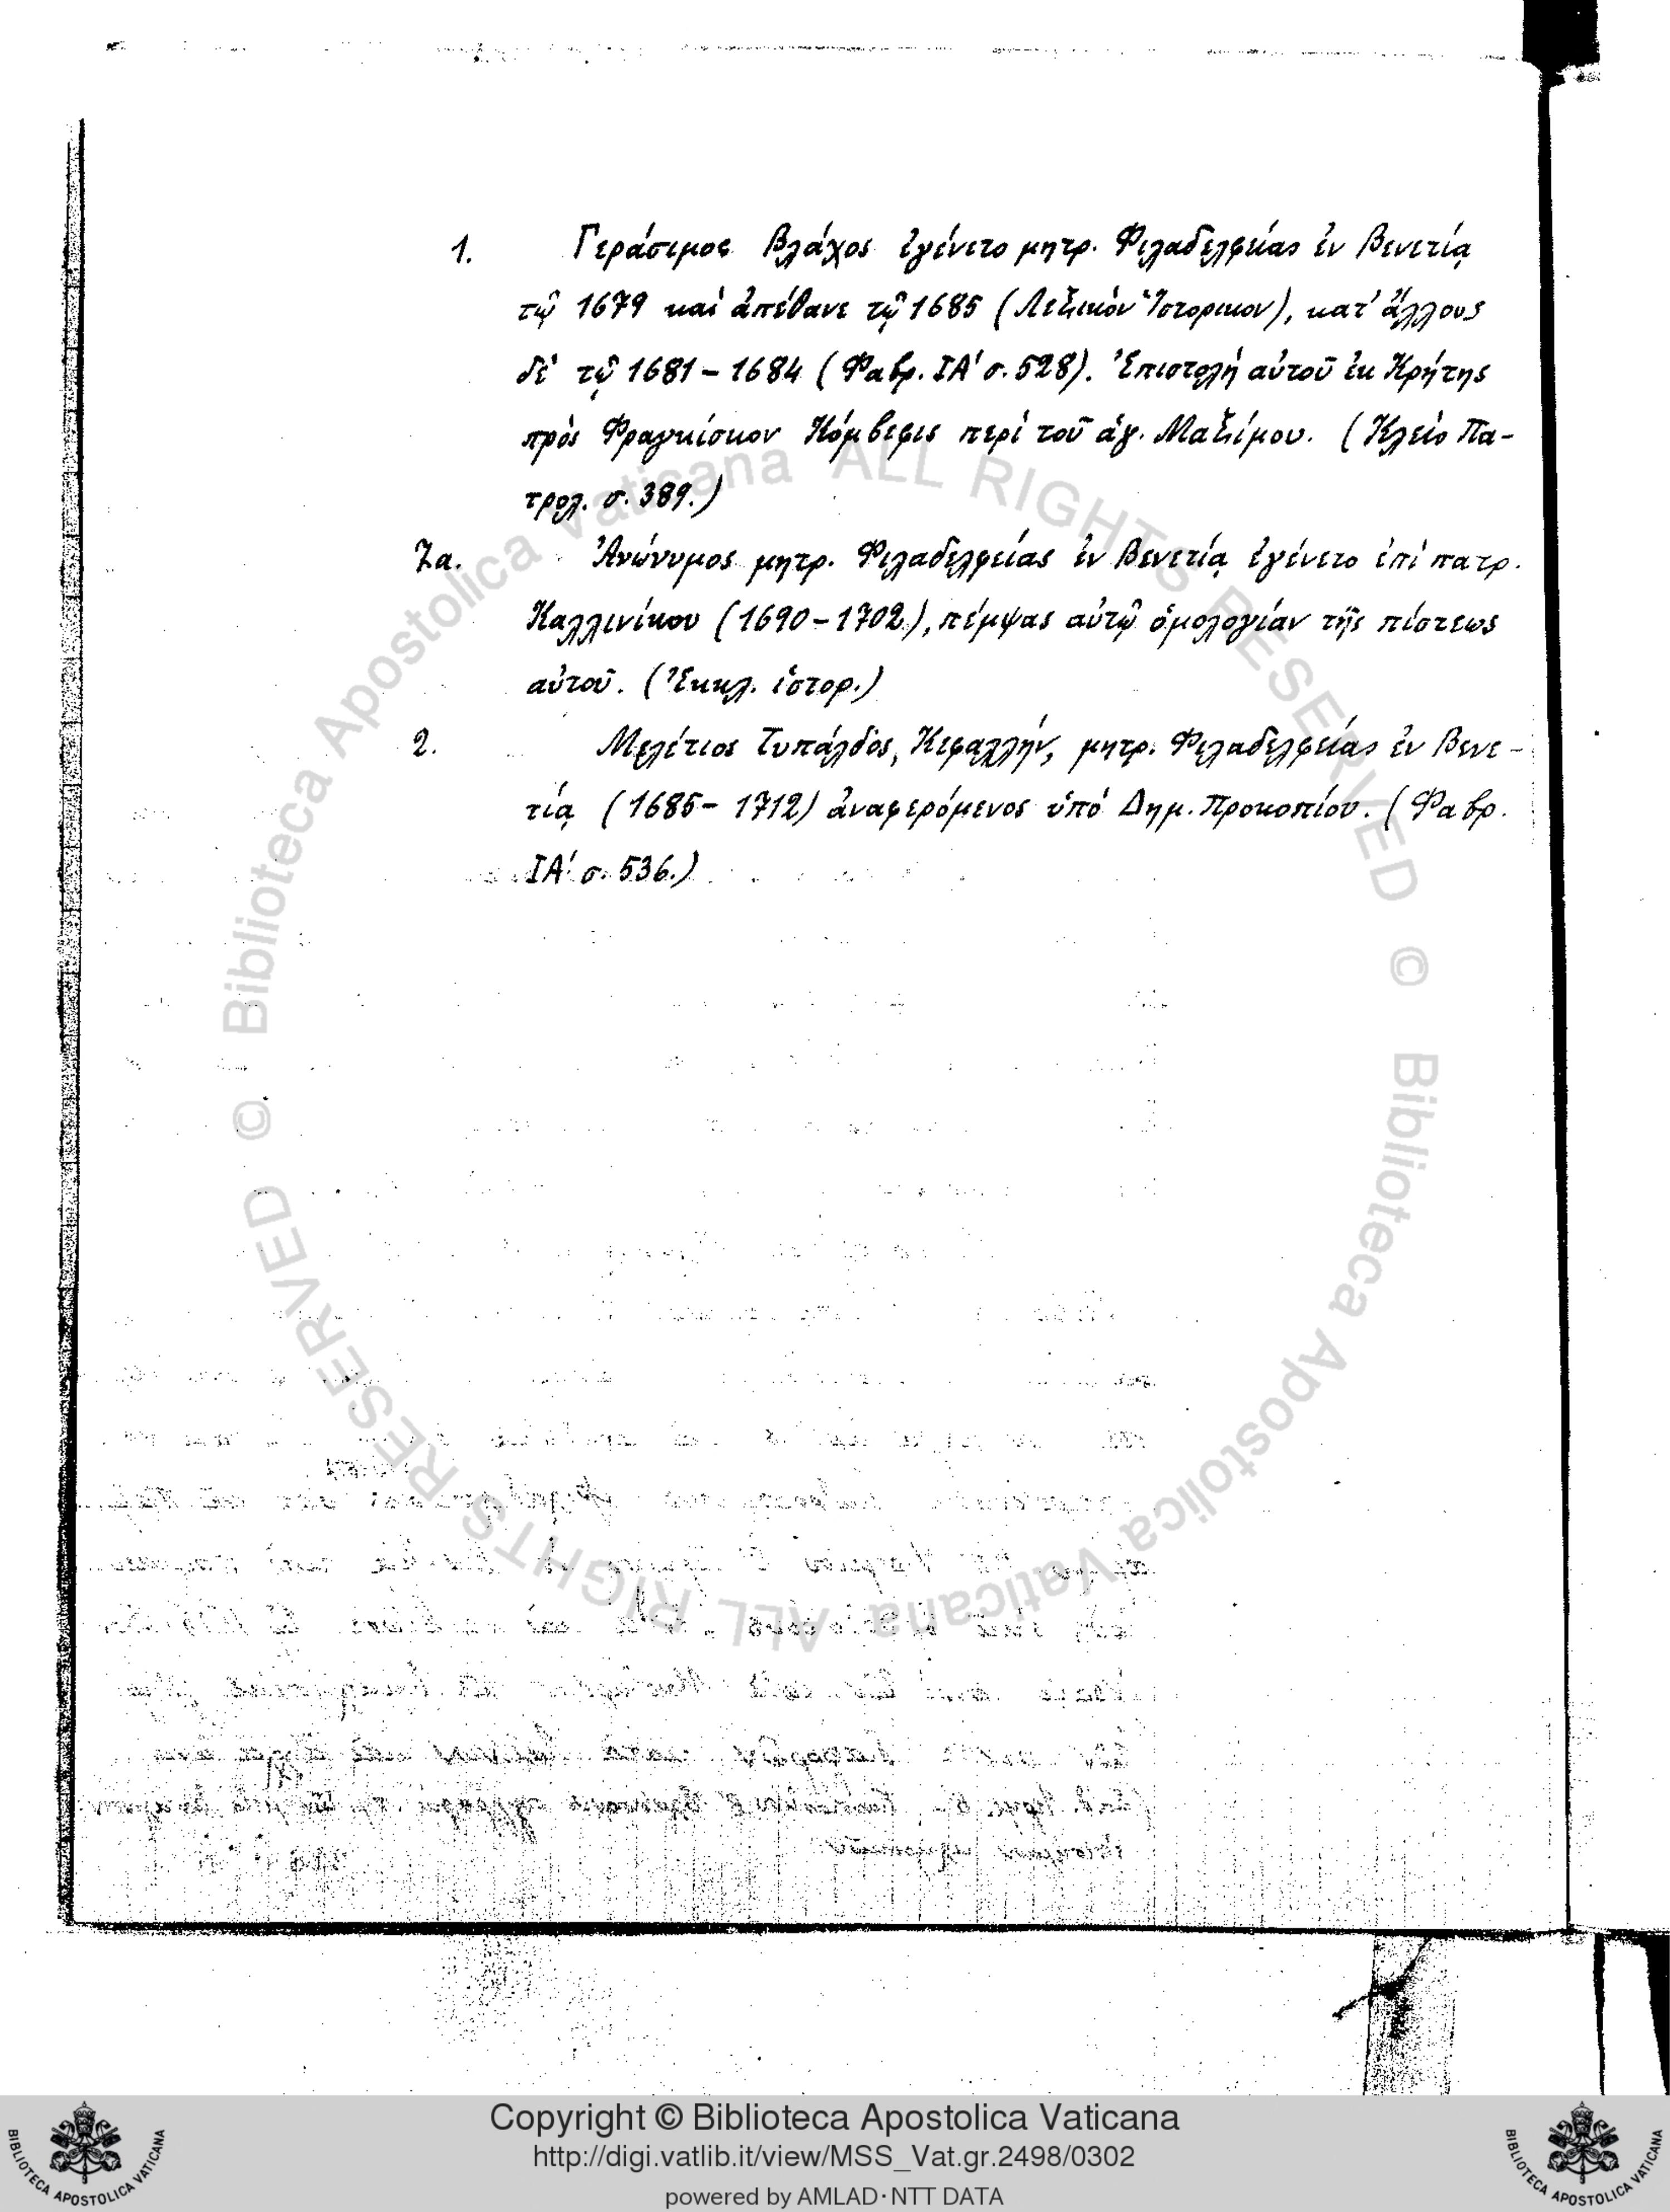 1. Γεράσιμος Βλάχος ἐγένετο μητρ. Φιλαδελφείας ἐν Βενετίᾳ
τῷ 1679 καὶ ἀπέθανε τῷ 1685 (Λεξικόν Ἱστορικον), κατ' ἄλλους
δὲ τῷ 1681-1684 (Φαβρ. ΙΑ' σ. 528). Ἐπιστολή αὐτοῦ ἐκ Κρήτης
πρὸς Φραγκίσκον Κόμβεφις περὶ τοῦ ἁγ. Μαξίμου. (Κλείς Πα-
τρολ. σ. 389.)
7α. Ἀνώνυμος μητρ. Φιλαδελφείας ἐν Βενετίᾳ ἐγένετο ἐπὶ πατρ.
Καλλινίκου (1690-1702), πέμψας αὐτῷ ὁμολογίαν τῆς πίστεως
αὐτοῦ. (Ἐκκλ. ἱστορ.)
2. Μελέτιος Τυπάλδος, Κεφαλλήν, μητρ. Φιλαδελφείας ἐν Βενε-
τίᾳ (1685-1712) ἀναφερόμενος ὑπό Δημ. Προκοπίου. (Φαβρ.
ΙΑ' σ. 536.)
© Biblioteca Apostolica Vaticana ALL RIGHTS RESERVED
© Biblioteca Apostolica Vaticana ALL RIGHTS RESERVED
BIBLIOTECA APOSTOLICA VATICANA
Copyright © Biblioteca Apostolica Vaticana
http://digi.vatlib.it/view/MSS_Vat.gr.2498/0302
powered by AMLAD·NTT DATA
BIBLIOTECA APOSTOLICA VATICANA